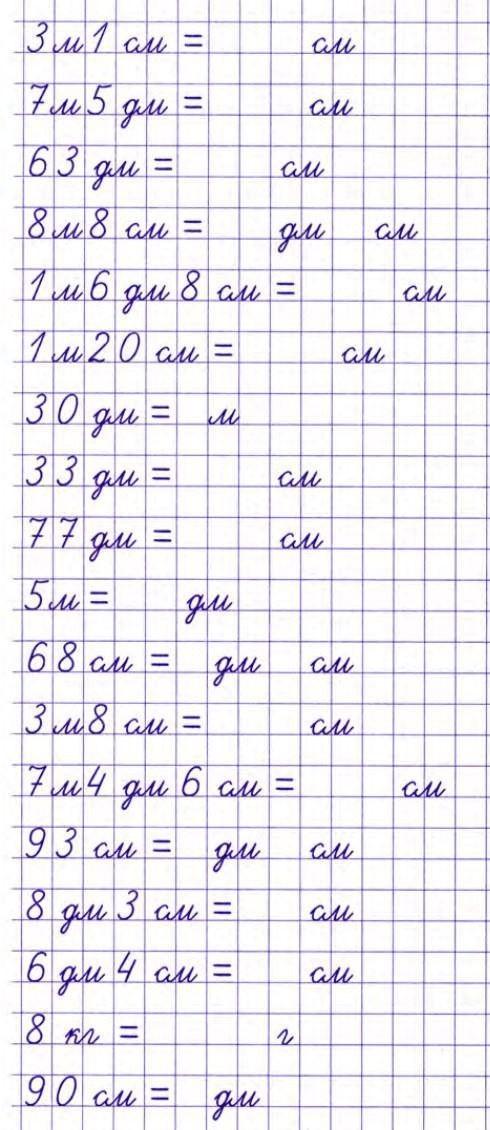 3 м 1 см = см
7 м 5 дм = см
63 дм = см
8 м 8 см = дм см
1 м 6 дм 8 см = см
1 м 20 см = см
30 дм = м
33 дм = см
77 дм = см
5 м = дм
68 см = дм см
3 м 8 см = см
7 м 4 дм 6 см = см
93 см = дм см
8 дм 3 см = см
6 дм 4 см = см
8 кг = г
90 см = дм